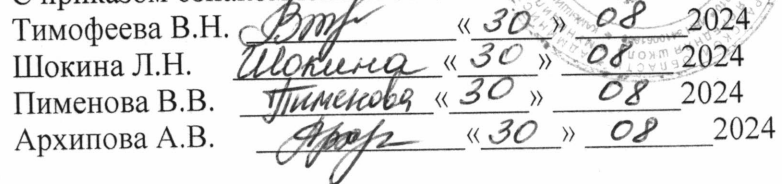 С приказом
Тимофеева В.Н. « 30 » 08 2024
Шокина Л.Н. Шокина « 30 » 08 2024
Пименова В.В. Пименова « 30 » 08 2024
Архипова А.В. « 30 » 08 2024